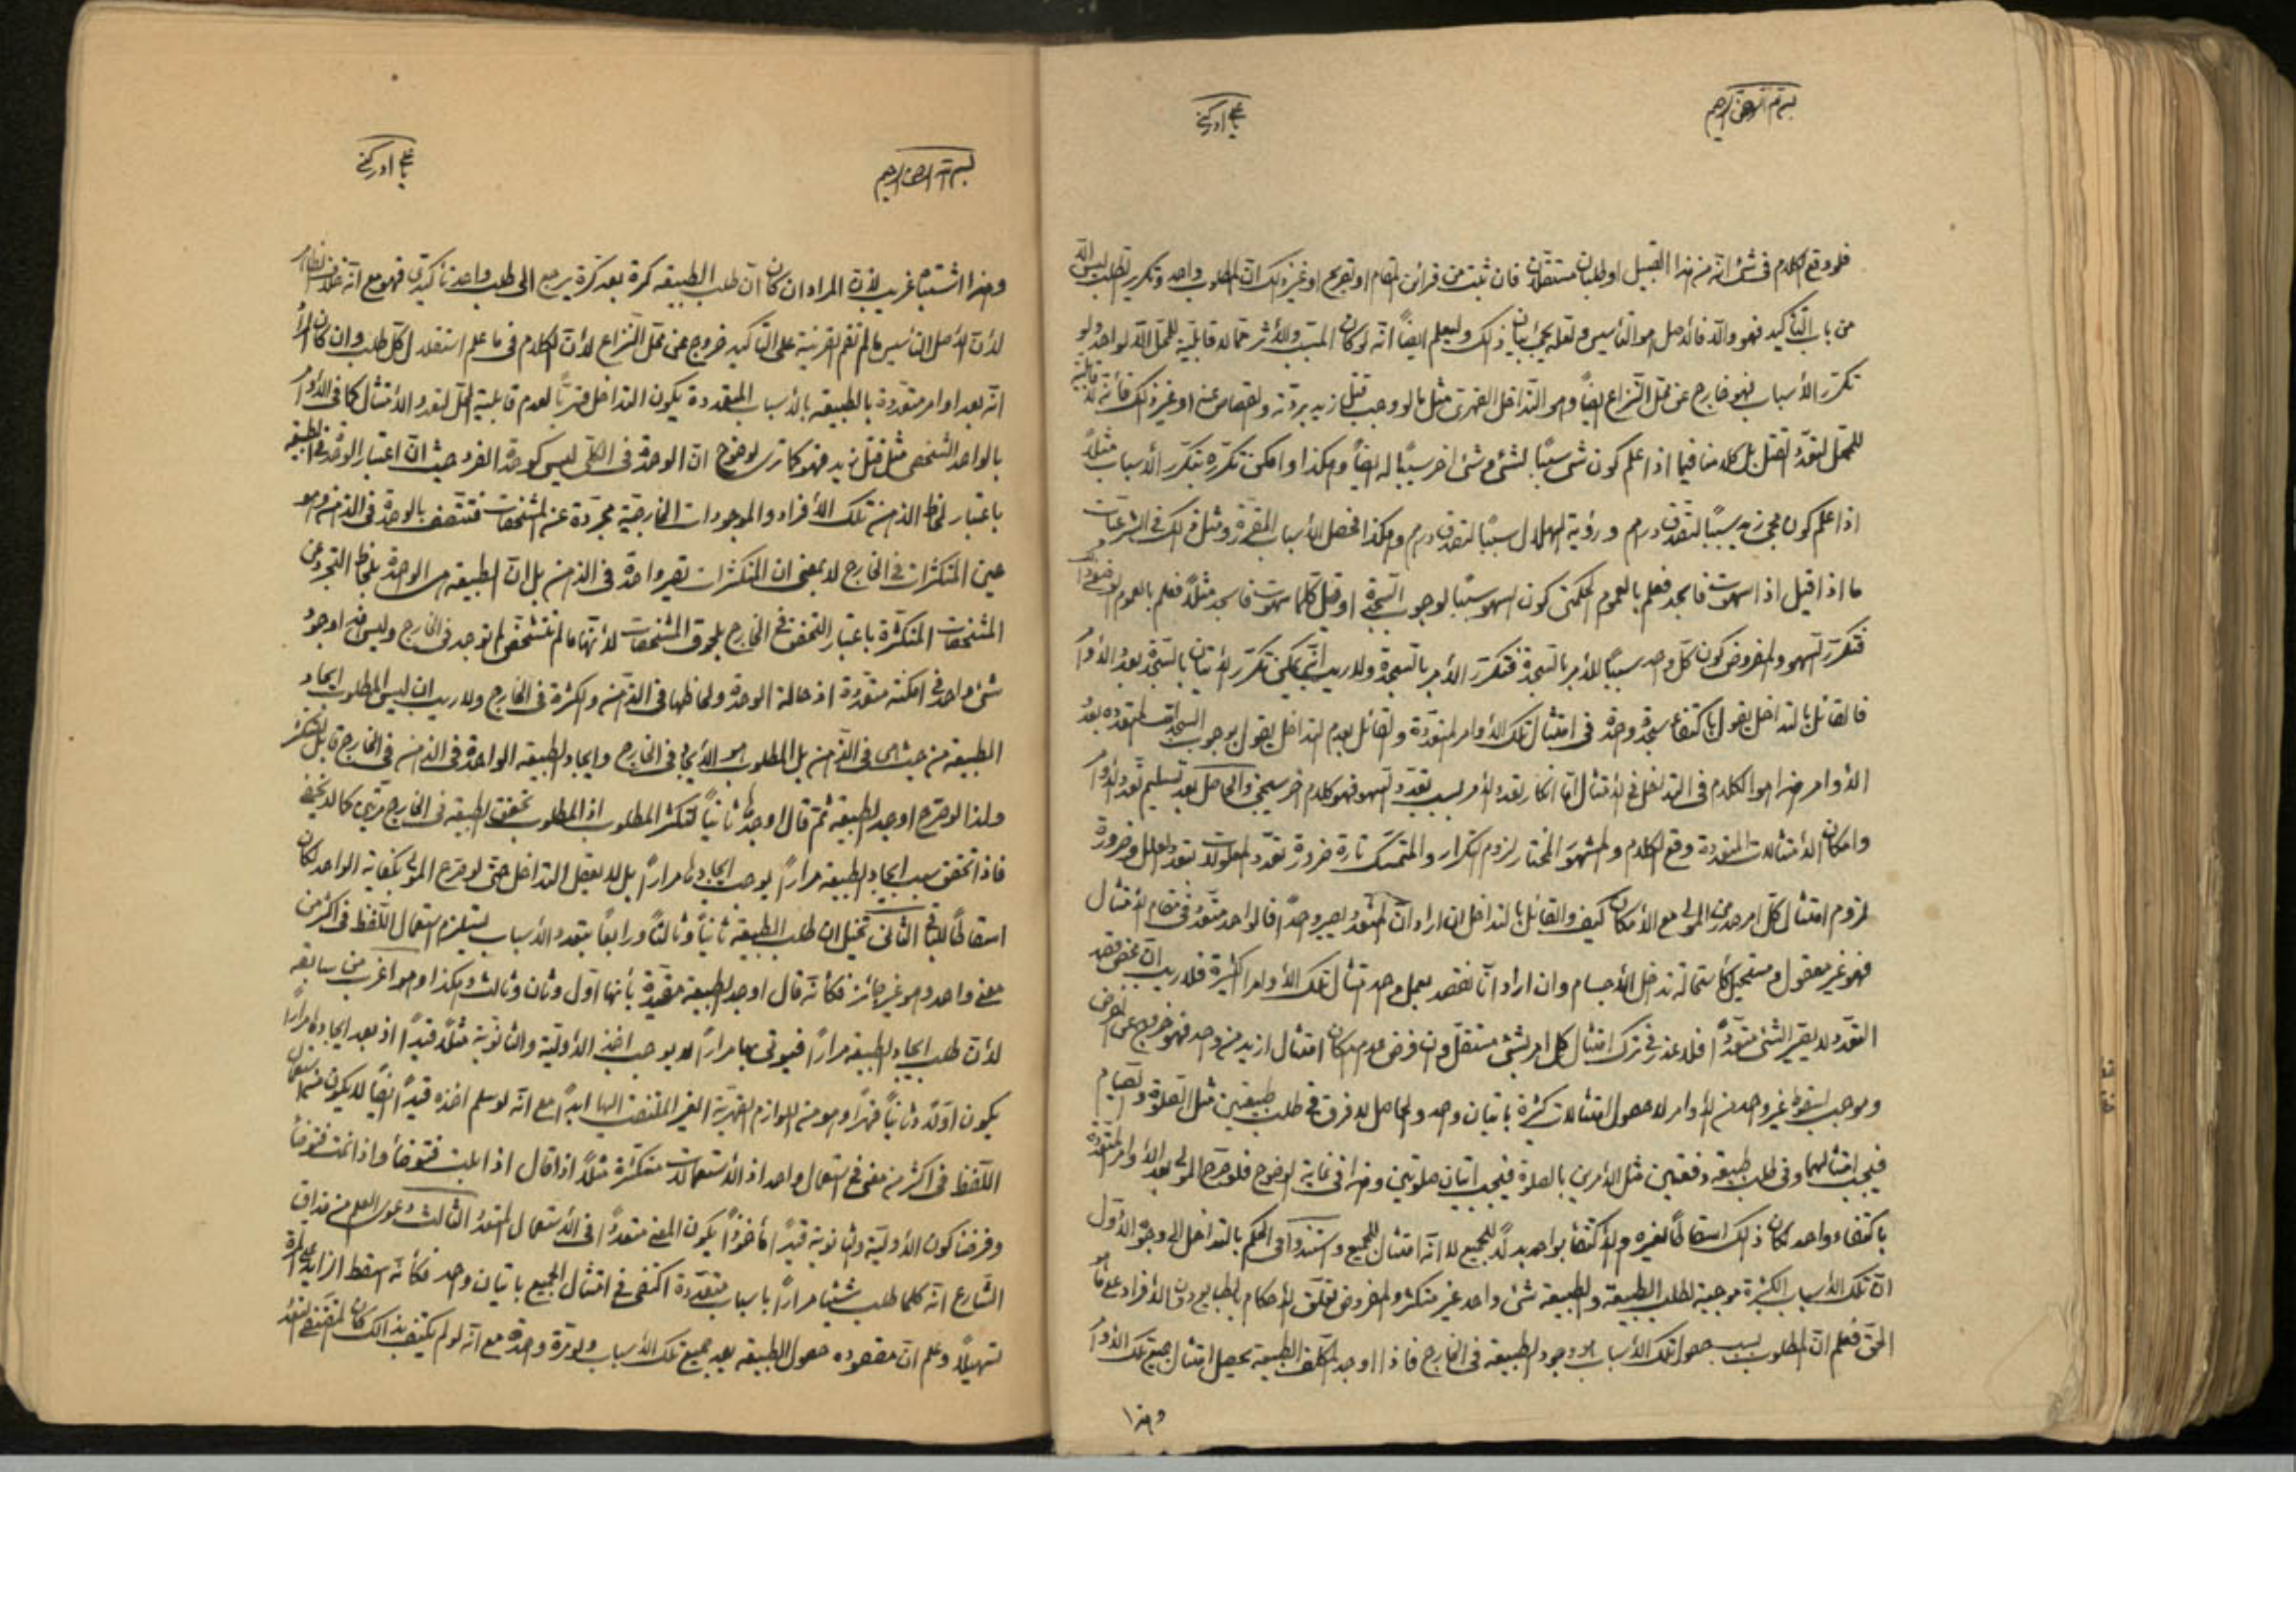 بسم الله الرحمن الرحيم
يا علي ادركني
فلو وقع الكلام في شئ انه من هذا القبيل او طلبان مستقلان فان ثبت من قرائن المقام او تصريح او غير ذلك ان المطلوب واحد وتكرير الطلب ليس الا
من باب التأكيد فهو والا فالاصل هو التأسيس ولعله يجئ بيان ذلك وليعلم ايضاً انه لو كان المسبب والاثر مما لا قابلية للمحل الا لواحد ولو
تكرر الأسباب فهو خارج عن محل النزاع ايضاً وهو التداخل القهري مثل ما لو وجب قتل زيد بردته ولقصاص عنه او غير ذلك فانه لا قابلية
للمحل لتعدد القتل بل كلامنا فيما اذا علم كون شئ سبباً لشئ وشئ اخر سبباً له ايضاً وهكذا وامكن تكرره بتكرر الأسباب مثلاً
اذا علم كون مجئ زيد سبباً لتصدق درهم ورؤية الهلال سبباً لتصدق درهم وهكذا لحصل الأسباب المقررة ومثل ذلك في الشرعيات
ما اذا قيل اذا سهوت فاسجد فعلم بالعموم الحكمتي كون السهو سبباً لوجوب السجدة او قيل كلما سهوت فاسجد مثلاً فعلم بالعموم الوضعي
فتكرر السهو والمفروض كون كل واحد سبباً للأمر بالسجدة فتكرر الأمر بالسجدة ولا ريب انه يمكن تكرر الإتيان بالسجدة بعدد الأوامر
فالقائل بالتداخل يقول باكتفاء سجدة واحدة في امتثال تلك الأوامر المتعددة والقائل بعدم التداخل يقول بوجوب السجدات المتعددة بعدد
الأوامر هذا هو الكلام في التداخل في الإمتثال اما انكار تعدد الأمر بسبب تعدد السهو فهو كلام اخر سيجئ والحاصل بعد تسليم تعدد الأوامر
وامكان الأمتثالات المتعددة وقع الكلام والمشهور المختار لزوم التكرار والمتمسك تارة ضرورة تعدد المعلولات بتعدد العلل وضرورة
لزوم امتثال كل امر صدر من المولى مع الأمكان كيف والقائل بالتداخل ان اراد ان المتعدد يصير واحداً فالواحد متعدد في مقام الأمتثال
فهو غير معقول ومستحيل كاستحالة تداخل الأجسام وان اراد انا نقصد بعمل واحد امتثال تلك الأوامر الكثيرة فلا ريب ان محض قصد
التعدد لا يصير الشئ متعدداً فلا عذر في ترك امتثال كل امر بشئ مستقل وان فرض عدم امكان امتثال ازيد من واحد فهو خروج عن الفرض
وموجب لسقوط غير واحد من الأوامر لا حصول امتثالات كثيرة باتيان واحد والحاصل لا فرق في طلب طبيعتين مثل الصلوة والصيام
فيجب امتثالهما وفي طلب طبيعة دفعتين مثل الأمرين بالصلوة فيجب اتيان صلوتين وهذا في غاية الوضوح فلو صرح المولى بعد الأوامر المتعددة
باكتفاء واحد لكان ذلك اسقاطاً لغيره والإكتفاء بواحد بدلاً للجميع لا انه امتثال للجميع واستندوا في الحكم بالتداخل الى وجوه الأول
ان تلك الأسباب الكثيرة موجبة لطلب الطبيعة والطبيعة شئ واحد غير متكثر والمفروض تعلق الأحكام بالطبايع دون الأفراد على ما هو
الحق فعلم ان المطلوب بسبب حصول تلك الأسباب هو وجود الطبيعة في الخارج فاذا اوجد المكلف الطبيعة يحصل امتثال جميع تلك الأوامر
وهذا
بسم الله الرحمن الرحيم
يا علي ادركني
وهذا اشتباه غريب لأن المراد ان كان ان طلب الطبيعة كرة بعد كرة يرجع الى طلب واحد تأكيدي فهو مع انه خلاف الظاهر
لأن الأصل التأسيس ما لم تقم القرينة على التأكيد خروج عن محل النزاع لأن الكلام في ما علم استقلال كل طلب وان كان المراد
انه بعد اوامر متعددة بالطبيعة بالأسباب المتعددة يكون التداخل قهرياً لعدم قابلية المحل لتعدد الأمتثال كما في الأوامر
بالواحد الشخصي مثل قتل زيد فهو كما ترى لوضوح ان الوحدة في الكلي ليس كوحدة الفرد حيث ان اعتبار الوحدة في الطبيعة
باعتبار لحاظ الذهن تلك الأفراد والموجودات الخارجية مجردة عن المشخصات فتتصف بالوحدة في الذهن وهو
عين المتكثرات في الخارج لا بمعنى ان المتكثرات تصير واحدة في الذهن بل ان الطبيعة هي الوحدة بلحاظ التجرد عن
المشخصات المتكثرة باعتبار التحقق في الخارج بلحوق المشخصات لأنها ما لم تتشخص لم توجد في الخارج وليس هذا وجود
شئ واحد في امكنة متعددة اذ حالة الوحدة ولحاظها في الذهن والكثرة في الخارج ولا ريب ان ليس المطلوب ايجاد
الطبيعة من حيث هي في الذهن بل المطلوب هو الأيجاد في الخارج وايجاد الطبيعة الواحدة في الذهن في الخارج قابل للتكثر
ولذا لو صرح اوجد الطبيعة ثم قال اوجدها ثانياً لتكثر المطلوب اذ المطلوب تحقق الطبيعة في الخارج مرتين كما لا يخفى
فاذا تحقق سبب ايجاد الطبيعة مراراً يوجب ايجادها مراراً بل لا يعقل التداخل حتى لو صرح المولى بكفاية الواحد لكان
اسقاطاً للباقي الثاني تخيل ان طلب الطبيعة ثانياً وثالثاً ورابعاً بتعدد الأسباب يستلزم استعمال اللفظ في اكثر من
معنى واحد وهو غير جائز فكانه قال اوجد الطبيعة مقيدة بأنها اول وثان وثالث وهكذا وهو اغرب من سابقه
لأن طلب ايجاد الطبيعة مراراً فيؤتى بها مراراً لا يوجب اخذ الأولية والثانوية مثلاً قيداً اذ بعد ايجادها مراراً
يكون اولاً وثانياً قهراً وهو من اللوازم القهرية الغير الملتفت اليها ابداً مع انه لو سلم اخذه قيداً ايضاً لا يكون استعمال
اللفظ في اكثر من معنى في استعمال واحد اذ الأستعمالات متكثرة مثلاً اذا قال اذا بلت فتوضأ واذا نمت فتوضأ
وفرضنا كون الأولية والثانوية قيداً مأخوذاً يكون المعنى متعدداً في الأستعمال المتعدد الثالث دعوى العلم من مذاق
الشارع انه كلما طلب شيئاً مراراً باسباب متعددة اكتفى في امتثال الجميع باتيان واحد فكأنه اسقط الزايد على المرة
تسهيلاً وعلم ان مقصوده حصول الطبيعة بعد جميع تلك الأسباب ولو مرة واحدة مع انه لو لم يكتف بذالك لكان المقتضي لتعدد